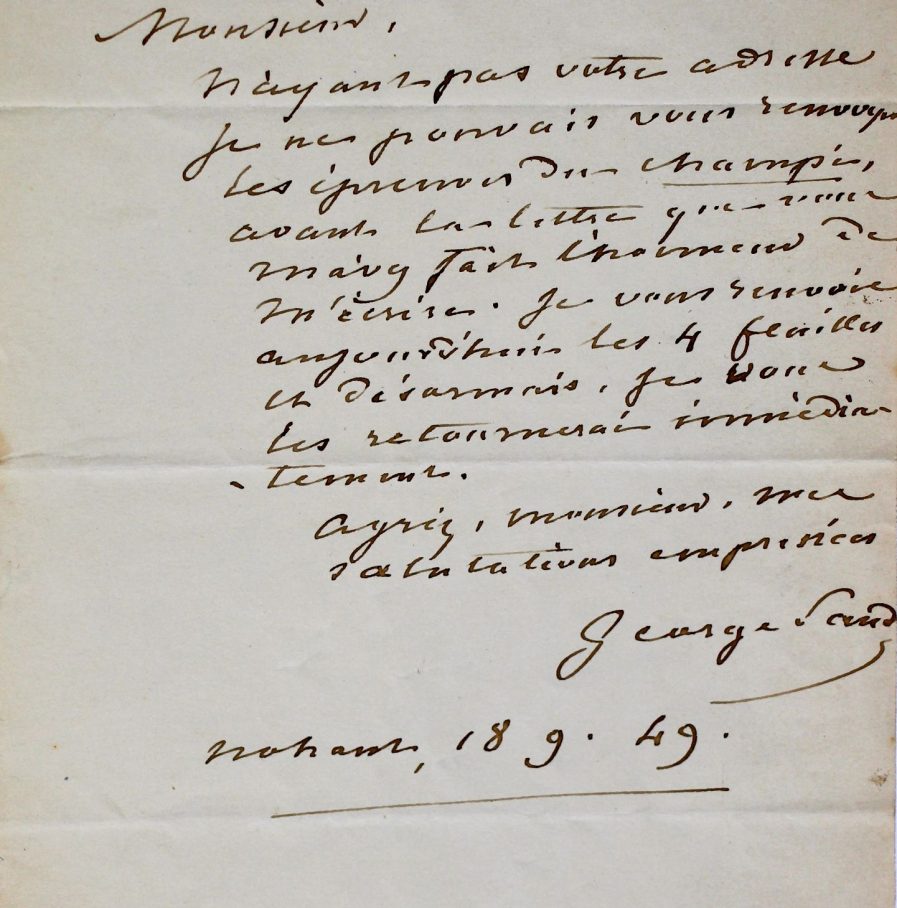 Monsieur,
N'ayant pas votre adresse
je ne pouvais vous renvoyer
les épreuves du champi,
avant la lettre que vous
m'avez fait l'honneur de
m'écrire. Je vous renvoie
aujourd'hui les 4 feuilles
et désormais, je vous
les retournerai immédia-
-tement.
Agréez, monsieur, mes
salutations empressées
George Sand
Nohant, 18 9. 49.